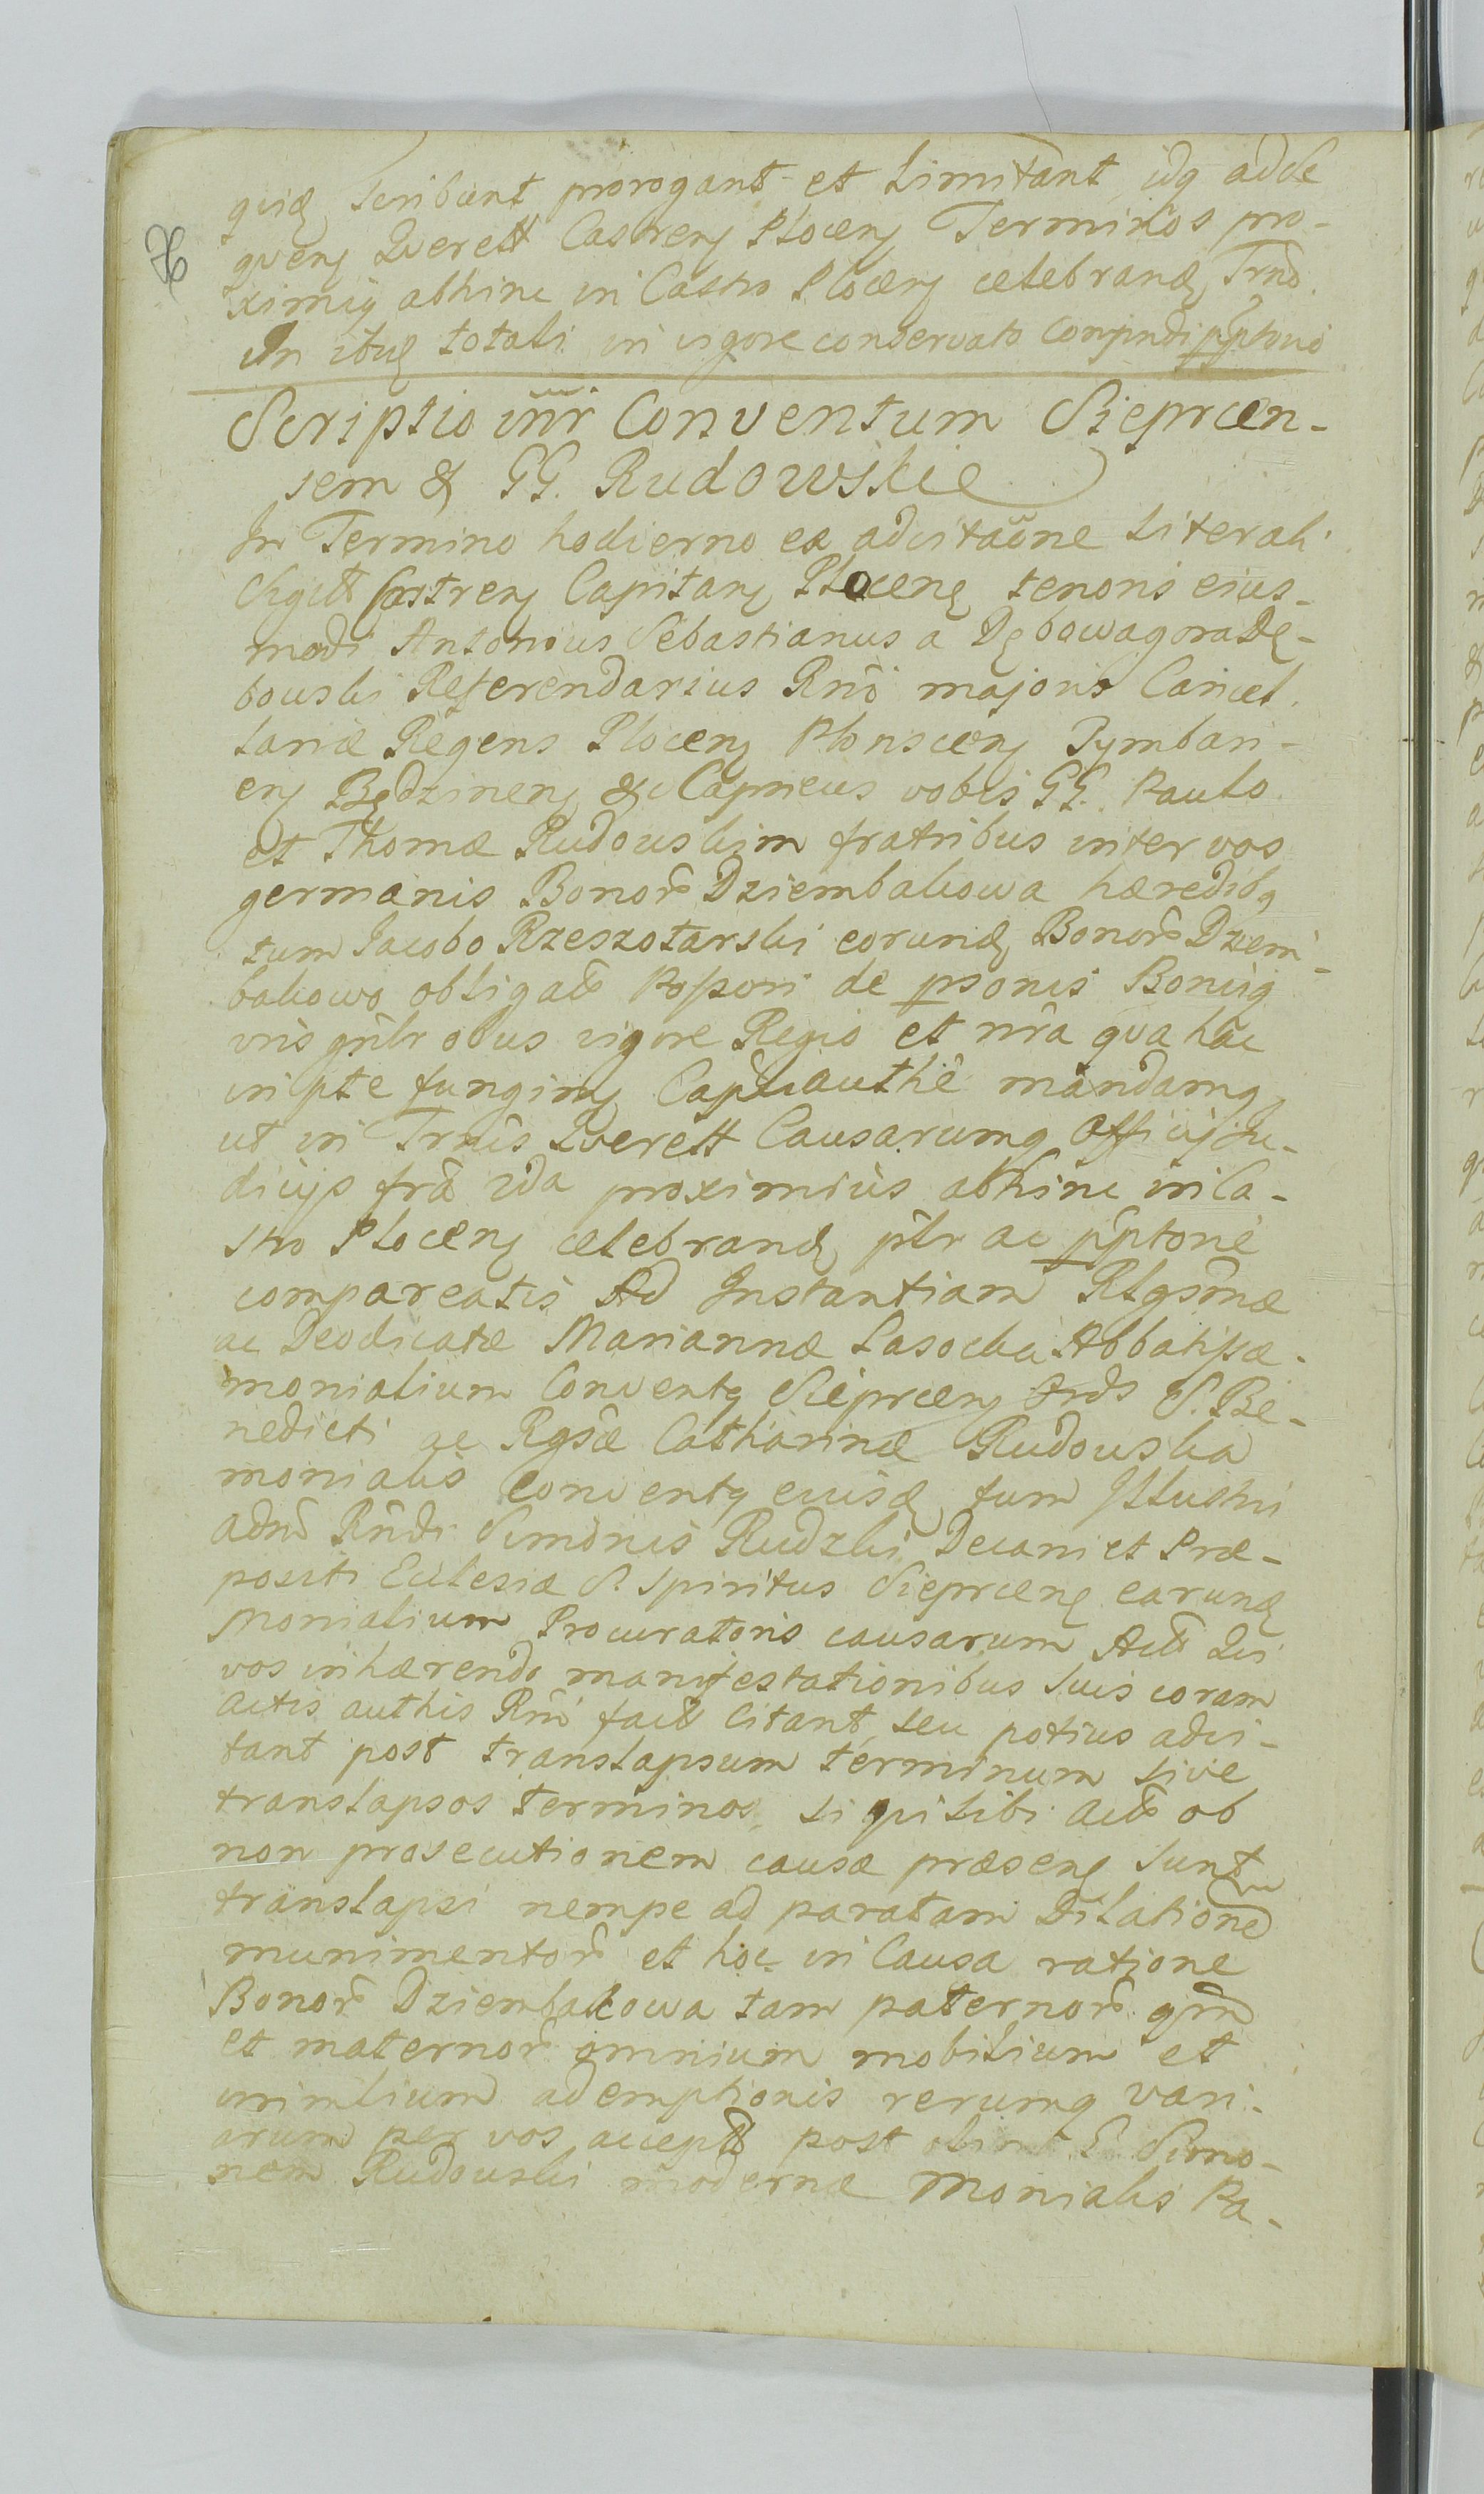 quið scribunt prorogant et Limitant idq adse
quenʒ Querell Castrenʒ Plocenʒ Terminos pro-
ximiq abhinc in Castro Plocenʒ celebrand Trno.
In ibus totali in vigore conservato
Scriptio inr Conventum Sieprcen-
sem & GG. Rudowskie
In Termino hodierno ex adcitaōne Literali
Castrenʒ Capitanʒ Plocenʒ tenoris eius-
modi Antonius Sebastianus a Dębowagora Dę-
bouski Referendarius Rni majoris Cancel-
lariæ Regens Plocenʒ Plonscenʒ Tymbari-
enʒ Będzinenʒ &c Capneus vobis GG. Paulo
et Thomæ Rudouskim fratribus inter vos
germanis Bonor Dziembakowa hæredibq
tum Jacobo Rzeszotarski eorund Bonor Dziem-
bakowo obligato Possori de psonis Bonisq
vris gnlr obus vigore Regio et nra qva hac
in pte fungimʒ Capnli authe mandamq
ut in Trnis Querell Causarumq Officij Ju-
dicijs fra 2da proximius abhinc in Ca-
stro Plocenʒ celebrand plr ac pptone
compareatis Ad Instantiam Rlgsmæ
ac Deodicatæ Mariannæ Lasocka Abbatissæ
monialium Conventq Sieprcenʒ Ords S. Be-
nedicti ac Rgsæ Catharinæ Rudouska
monialis Conventq eiusd tum Illustri
adm Rndi Simonis Rudzki Decani et Præ-
positi Eclesiæ S. Spiritus Sieprcenʒ earund
Monialium Procuratoris causarum Act Qui
vos inhærendo manifestationibus suis coram
actis authis Rni fact Citant, seu potius adci-
tant post translapsum terminum sive
translapsos terminos, si qui sibi acto ob
non prosecutionem causæ præsenʒ sunt
translapsi nempe ad paratam Dilatione
munimentor et hoc in Causa ratione
Bonor Dziembakowa tam paternor qm
et maternor omnium mobilium et
immlium ademptionis rerumq vari-
arum per vos accept post olim G Simo-
nem Rudouski modernæ Monialis Pa-